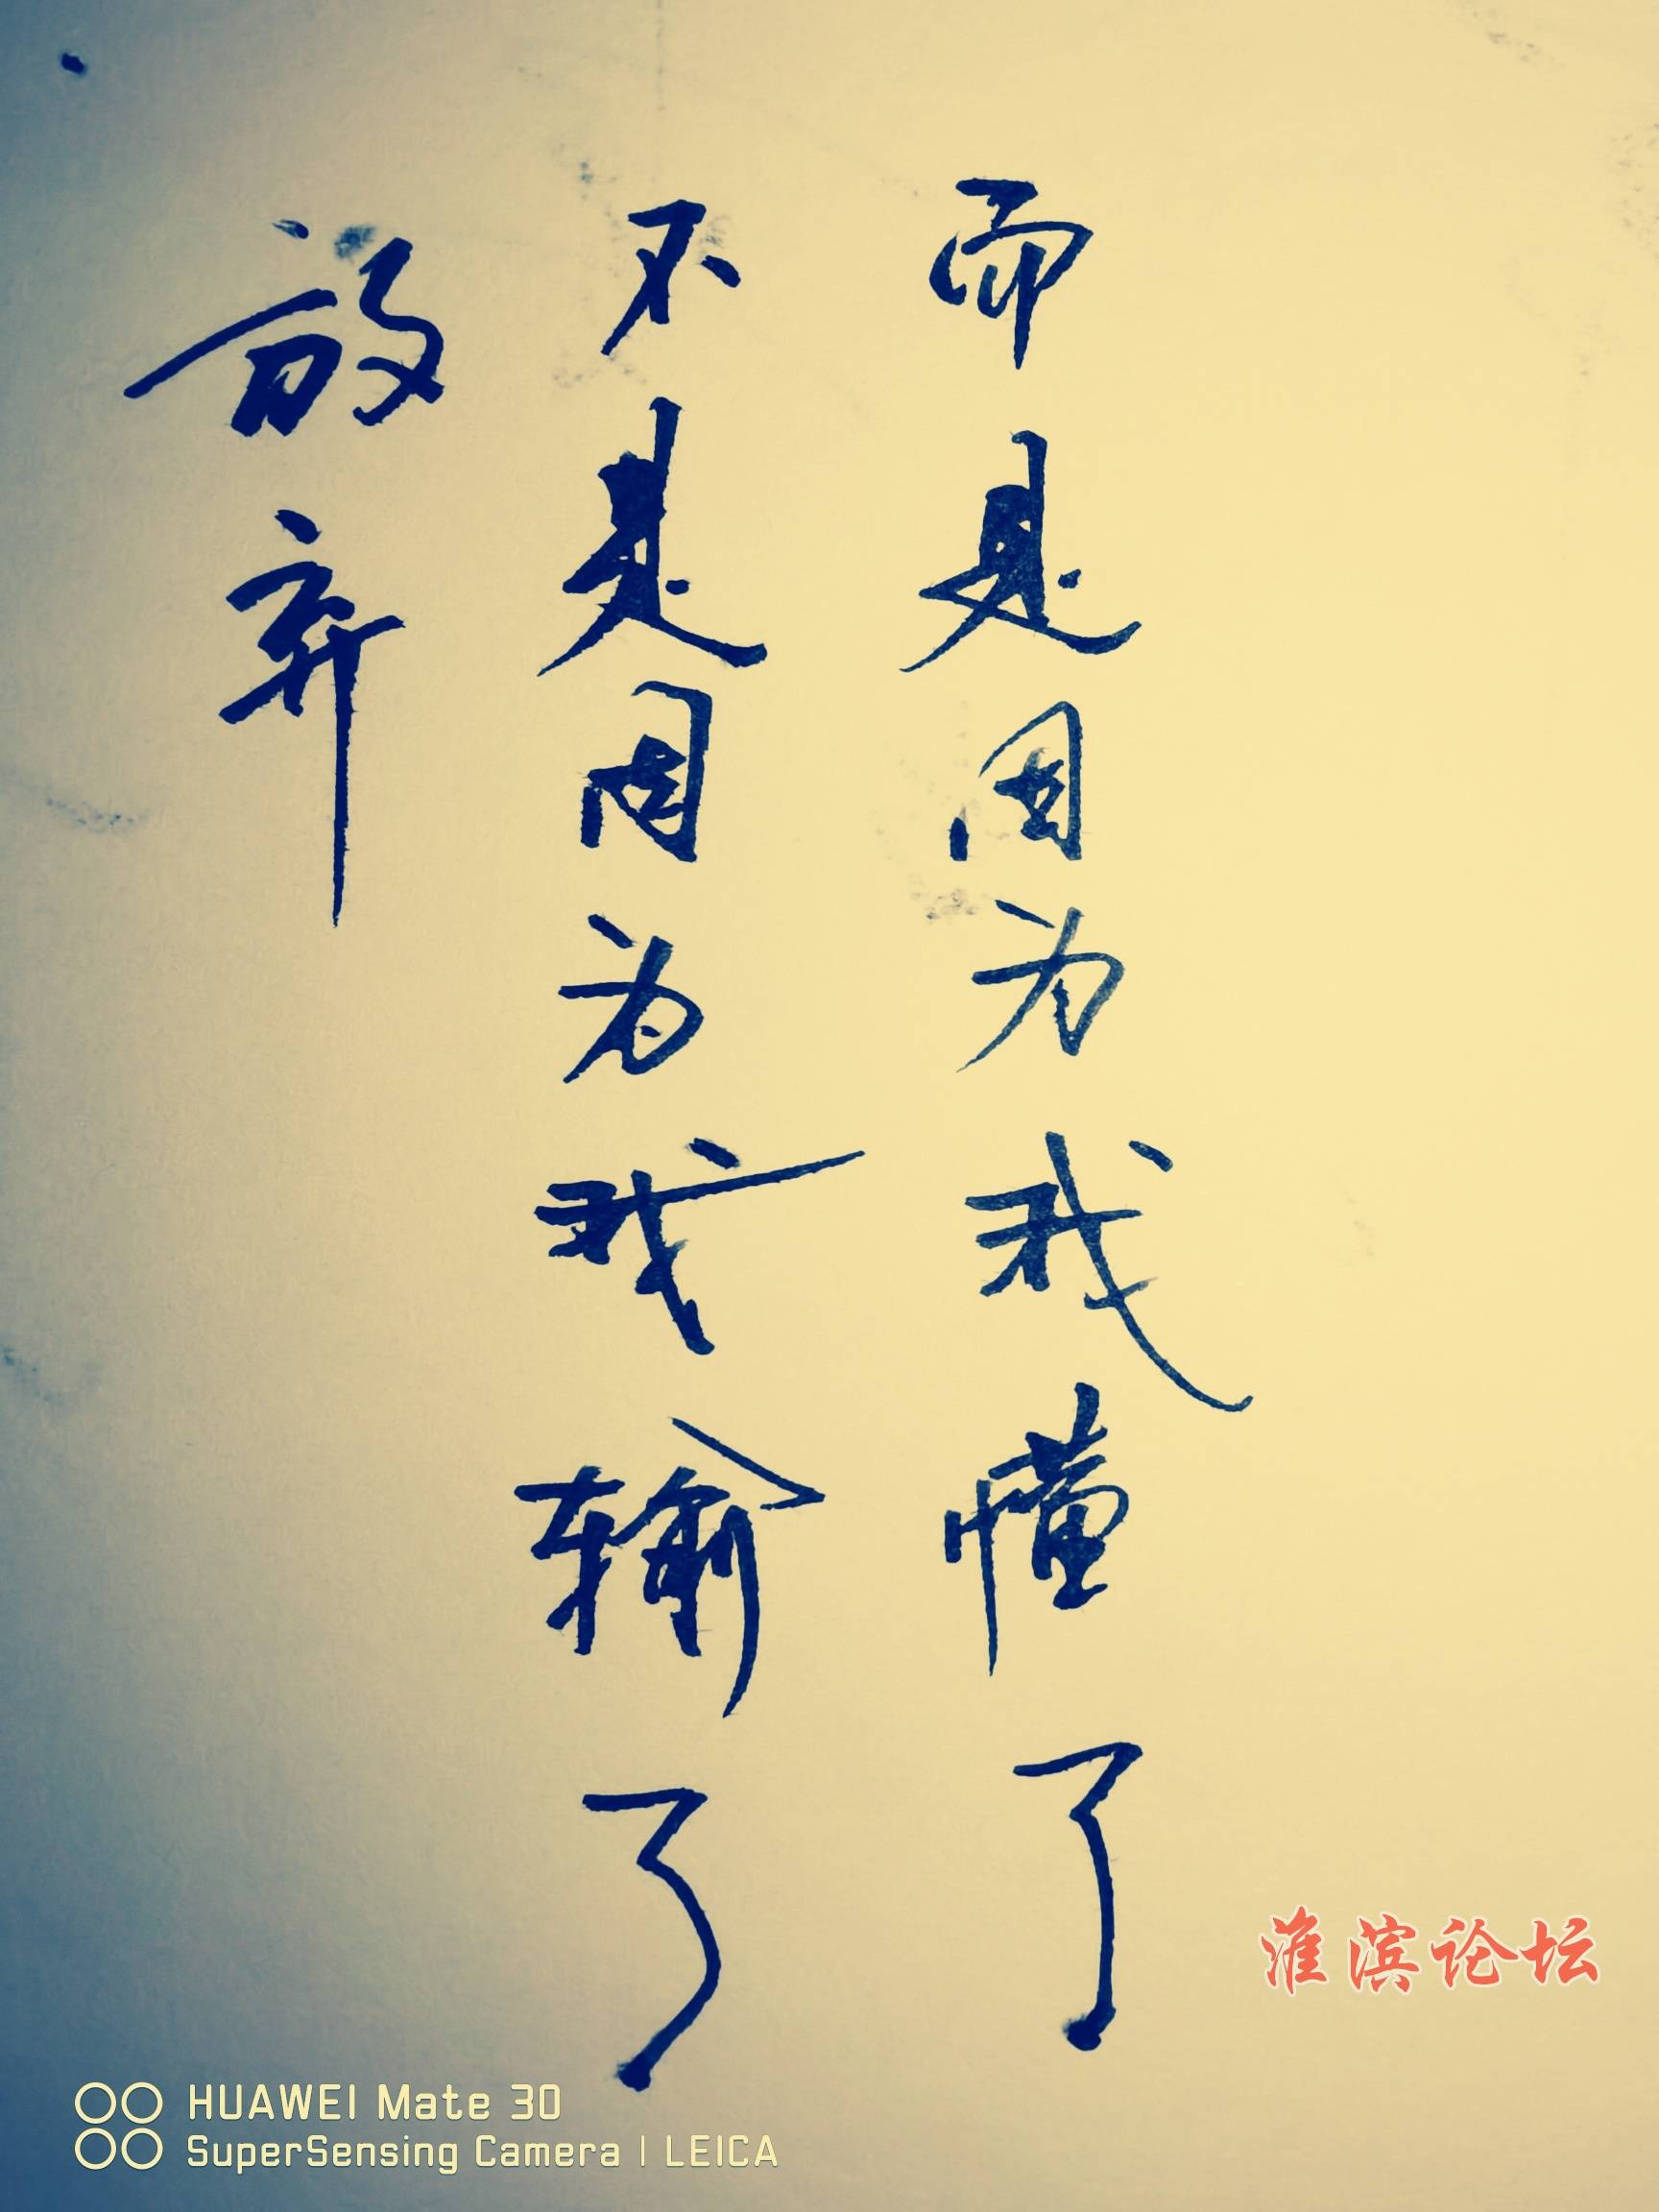 放弃
不是因为我输了
而是因为我懂了
淮滨论坛
HUAWEI Mate 30
SuperSensing Camera | LEICA